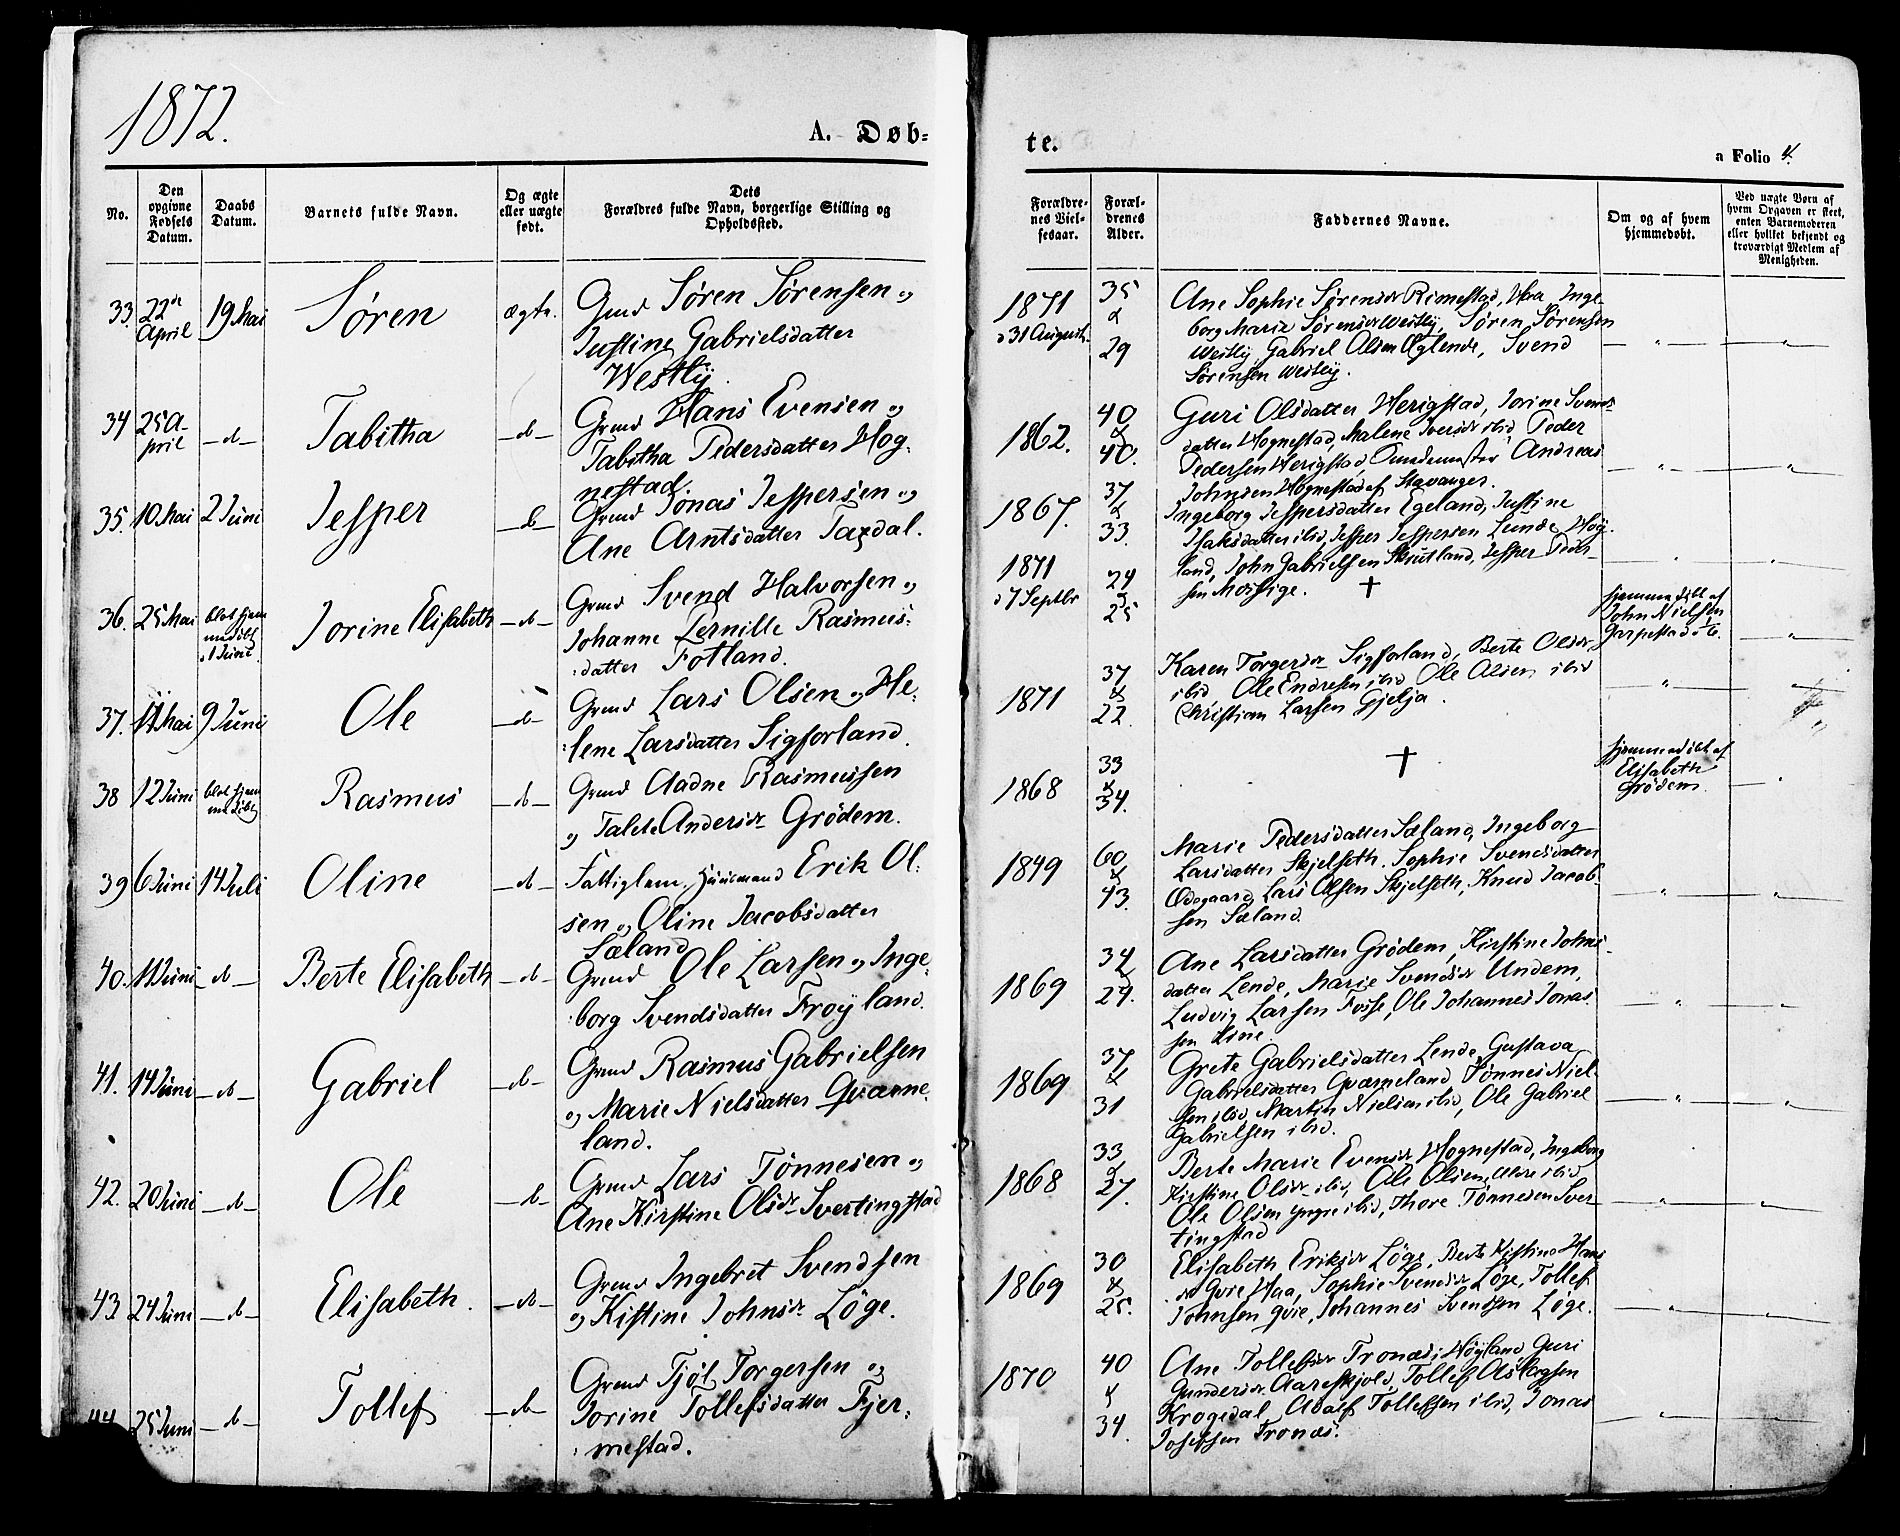 1872.
A. Døb=
te.
a Folio 4.
No.
Den opgivne Fødsels Datum.
Daabs Datum.
Barnets fulde Navn.
Og ægte eller uægte født.
Dets Forældres fulde Navn, borgerlige Stilling og Opholdssted.
Forældrenes Vielsesaar.
Forældrenes Alder.
Faddernes Navne.
Om og af hvem hjemmedøbt.
Ved uægte Børn af hvem Opgaven er skeet, enten Barnemoderen eller hvilket bekjendt og troværdigt Medlem af Menigheden.
33. 22de April 19 Mai Søren ægte.
Gmd Søren Sørensen og
Justine Gabrielsdatter
Westly.
1871 31 August. 35 & 29
Ane Sophie Sørensdr Rimestad, Inge-
borg Marie Sørensdr Westly, Søren Sørensen
Westly, Gabriel Olsen Øglende, Svend
Sørensen Westly.
34 25 April —d— Tabitha —d—
Grmd Hans Evensen og
Tabitha Pedersdatter Hog-
nestad.
1862. 40 & 40.
Guri Olsdatter Herigstad, Jorine Svends-
datter Hognestad, Malene Iversdr ibid, Peder
Pedersen Herigstad, Andreas
Johnsen Hognestad af Stavanger.
35. 10 Mai 2 Juni Jesper —d—
Grmd Jonas Jespersen og
Ane Arntsdatter Taxdal.
1867. 37 & 33.
Ingeborg Jespersdatter Egeland, Justine
Isaksdatter ibid, Jesper Jespersen Lunde Høy-
land, John Gabrielsen Skrutland, Jesper Peder-
sen Mossige.
36. 25 Mai blot hjem-
medøbt
1 Juni. Jorine Elisabeth —d—
Grmd Svend Halvorsen og
Johanne Pernille Rasmus-
datter Fotland.
1871 7 Septbr 24 & 25
†
hjemmedøbt af
John Nielsen
Garpestad
37. 11 Mai 9 Juni Ole —d—
Grmd Lars Olsen og He-
lene Larsdatter Sigforland.
1871 37 & 22.
Karen Torgersdr Sigforland, Berte Olsdr
ibid Ole Endresen ibid Ole Olsen ibid
Christian Larsen Gjelja.
38 12 Juni blot hjem-
medøbt Rasmus —d—
Grmd Aadne Rasmussen
og Talete Andersdr Grødem.
1868 33 & 34.
†
hjemmedøbt af
Elisabeth
Grødem.
39 6 Juni 14 Juli Oline —d—
Fattiglem, Huusmand Erik Ol-
sen og Oline Jacobsdatter
Sæland
1849 60 & 43.
Marie Pedersdatter Sæland, Ingeborg
Larsdatter Skjelseth, Sophie Svendsdatter
Ødegaard, Lars Olsen Skjelseth, Knud Jacob-
sen Sæland.
40. 11 Juni —d— Berte Elisabeth —d—
Grmd Ole Larsen og Inge-
borg Svendsdatter Frøyland.
1869 34 & 29.
Ane Larsdatter Grødem, Kirstine Johns-
datter Lende, Marie Svendsdr Undem,
Ludvig Larsen Fosse, Ole Johannes Jonas-
sen Line.
41. 14 Juni —d— Gabriel —d—
Grmd Rasmus Gabrielsen
og Marie Nielsdatter Qværne-
land.
1869 37 & 31
Grete Gabrielsdatter Lende, Gustava
Gabrielsdatter Qværneland, Tønnes Niel-
sen ibid, Martin Nielsen ibid, Ole Gabriel
Gabrielsen ibid.
42. 20 Juni —d— Ole —d—
Grmd Lars Tønnesen og
Ane Kirstine Olsdr Svertingstad
1868 33 & 27.
Berte Marie Evensdr Hognestad, Ingeborg
Kirstine Olsdr ibid, Ole Olsen ældre ibid
Ole Olsen yngre ibid, Thore Tønnesen Sver-
tingstad
43 24 Juni —d— Elisabeth. —d—
Grmd Ingebret Svendsen
og Kistine Johnsdr Løge.
1869 30 & 25.
Elisabeth Eriksdr Løge, Berte Kistine Hans-
dr Qvie Haa, Sophie Svendsdr Løge, Tollef
Johnsen Qvie, Johannes Svendsen Løge.
44 25 Juni —d— Tollef —d—
Grmd Tjøl Torgersen og
Jorine Tollefsdatter Fjer-
mestad.
1870 40 & 34.
Ane Tollefsdr Tronæs i Høyland, Guri
Gundersdr Aareskjold, Tollef Aslaksen
Krogedal, Adolf Tollefsen ibid, Jonas
Josefsen Tronæs.